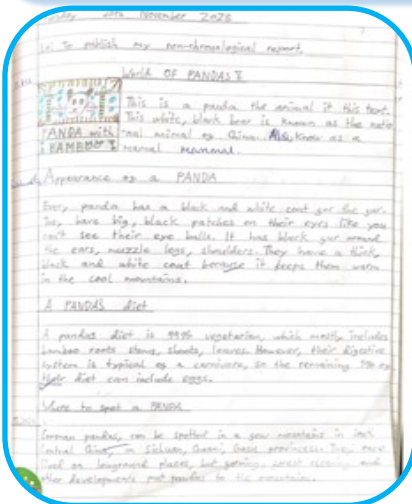 November 2023
Lo: To publish my non-chronological report.
World OF PANDAS
This is a panda the animal it this text.
This white, black bear is known as the nati
PANDA with
onal animal og China. Also, know as a
BAMBOO
mammal.
Appearance og a PANDA
Every panda has a black and white coat gor the gur.
They have big, black patches on their eyes like you
can't see their eye balls. It has black gur around
the ears, muzzle legs, shoulders. They have a thick,
black and white coat because it keeps them warm
in the cool mountains.
A PANDA'S diet
A pandas diet is 99% vegetarian, which mostly includes
bamboo roots stems, shoots, leaves. However, their digestive
system is typical og a carnivore, so the remaining 1% og
their diet can include eggs.
Where to spot a PANDA
pandas, can be spotted in a gew mountains in
China, in Sichuan, Gansu, provinces. They once
lived on places, but garming, gorest clearing and
other developments pandas to the mountains.